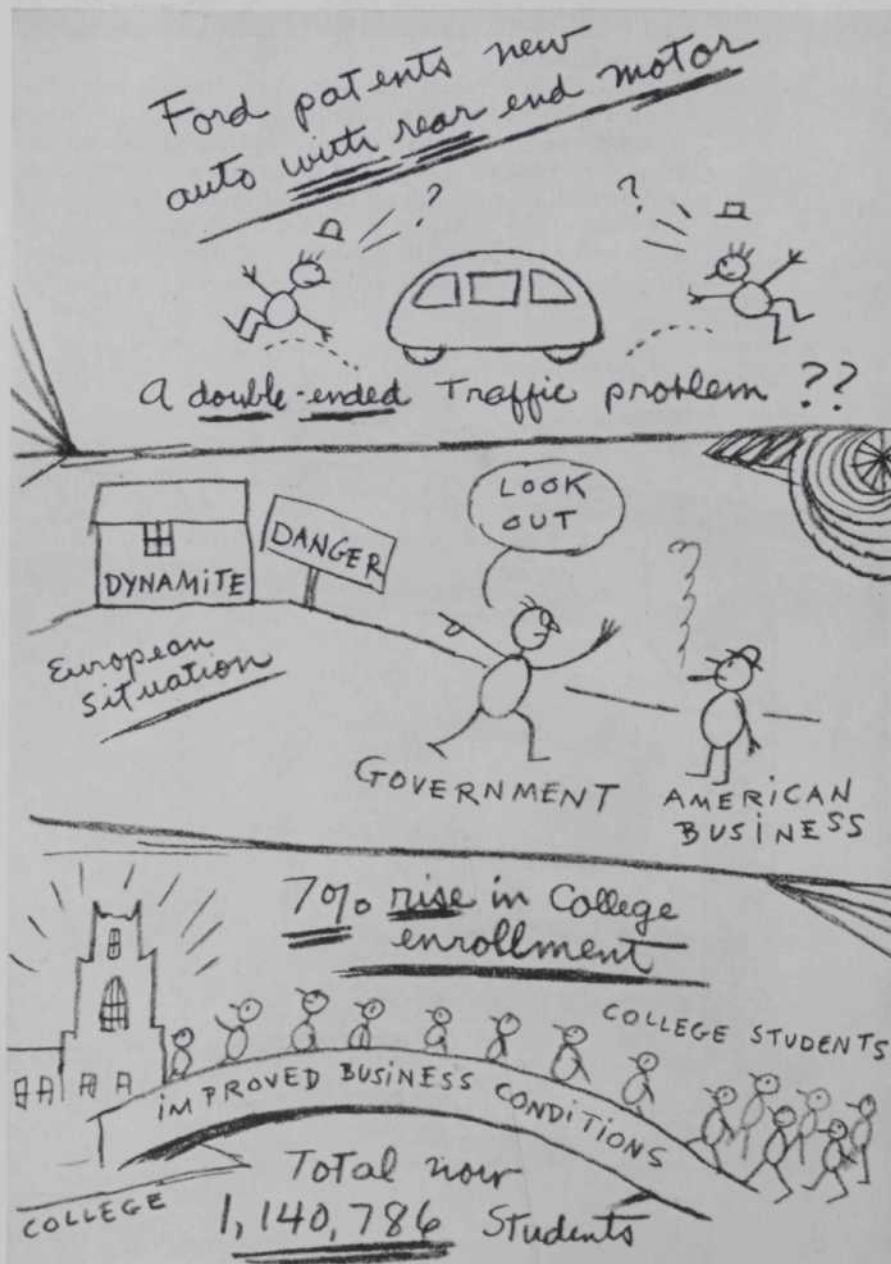 Ford patents new
auto with rear end motor
?
?
A double-ended Traffic problem ??
LOOK
OUT
DANGER
DYNAMITE
European
Situation
GOVERNMENT
AMERICAN
BUSINESS
7% rise in College
enrollment
COLLEGE STUDENTS
IMPROVED BUSINESS CONDITIONS
Total now
1,140,786 Students
COLLEGE